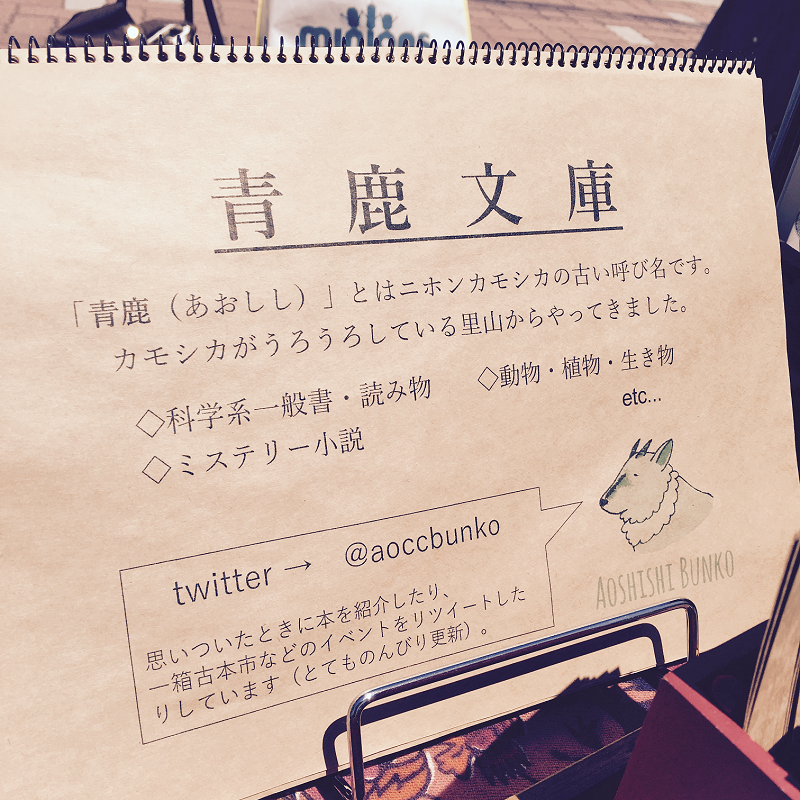 minions
青鹿文庫
「青鹿（あおしし）」とはニホンカモシカの古い呼び名です。
カモシカがうろうろしている里山からやってきました。
◇科学系一般書・読み物 ◇動物・植物・生き物
◇ミステリー小説 etc...
twitter→ @aoccbunko
思いついたときに本を紹介したり、
一箱古本市などのイベントをリツイートした
りしています（とてものんびり更新）。
AOSHISHI BUNKO